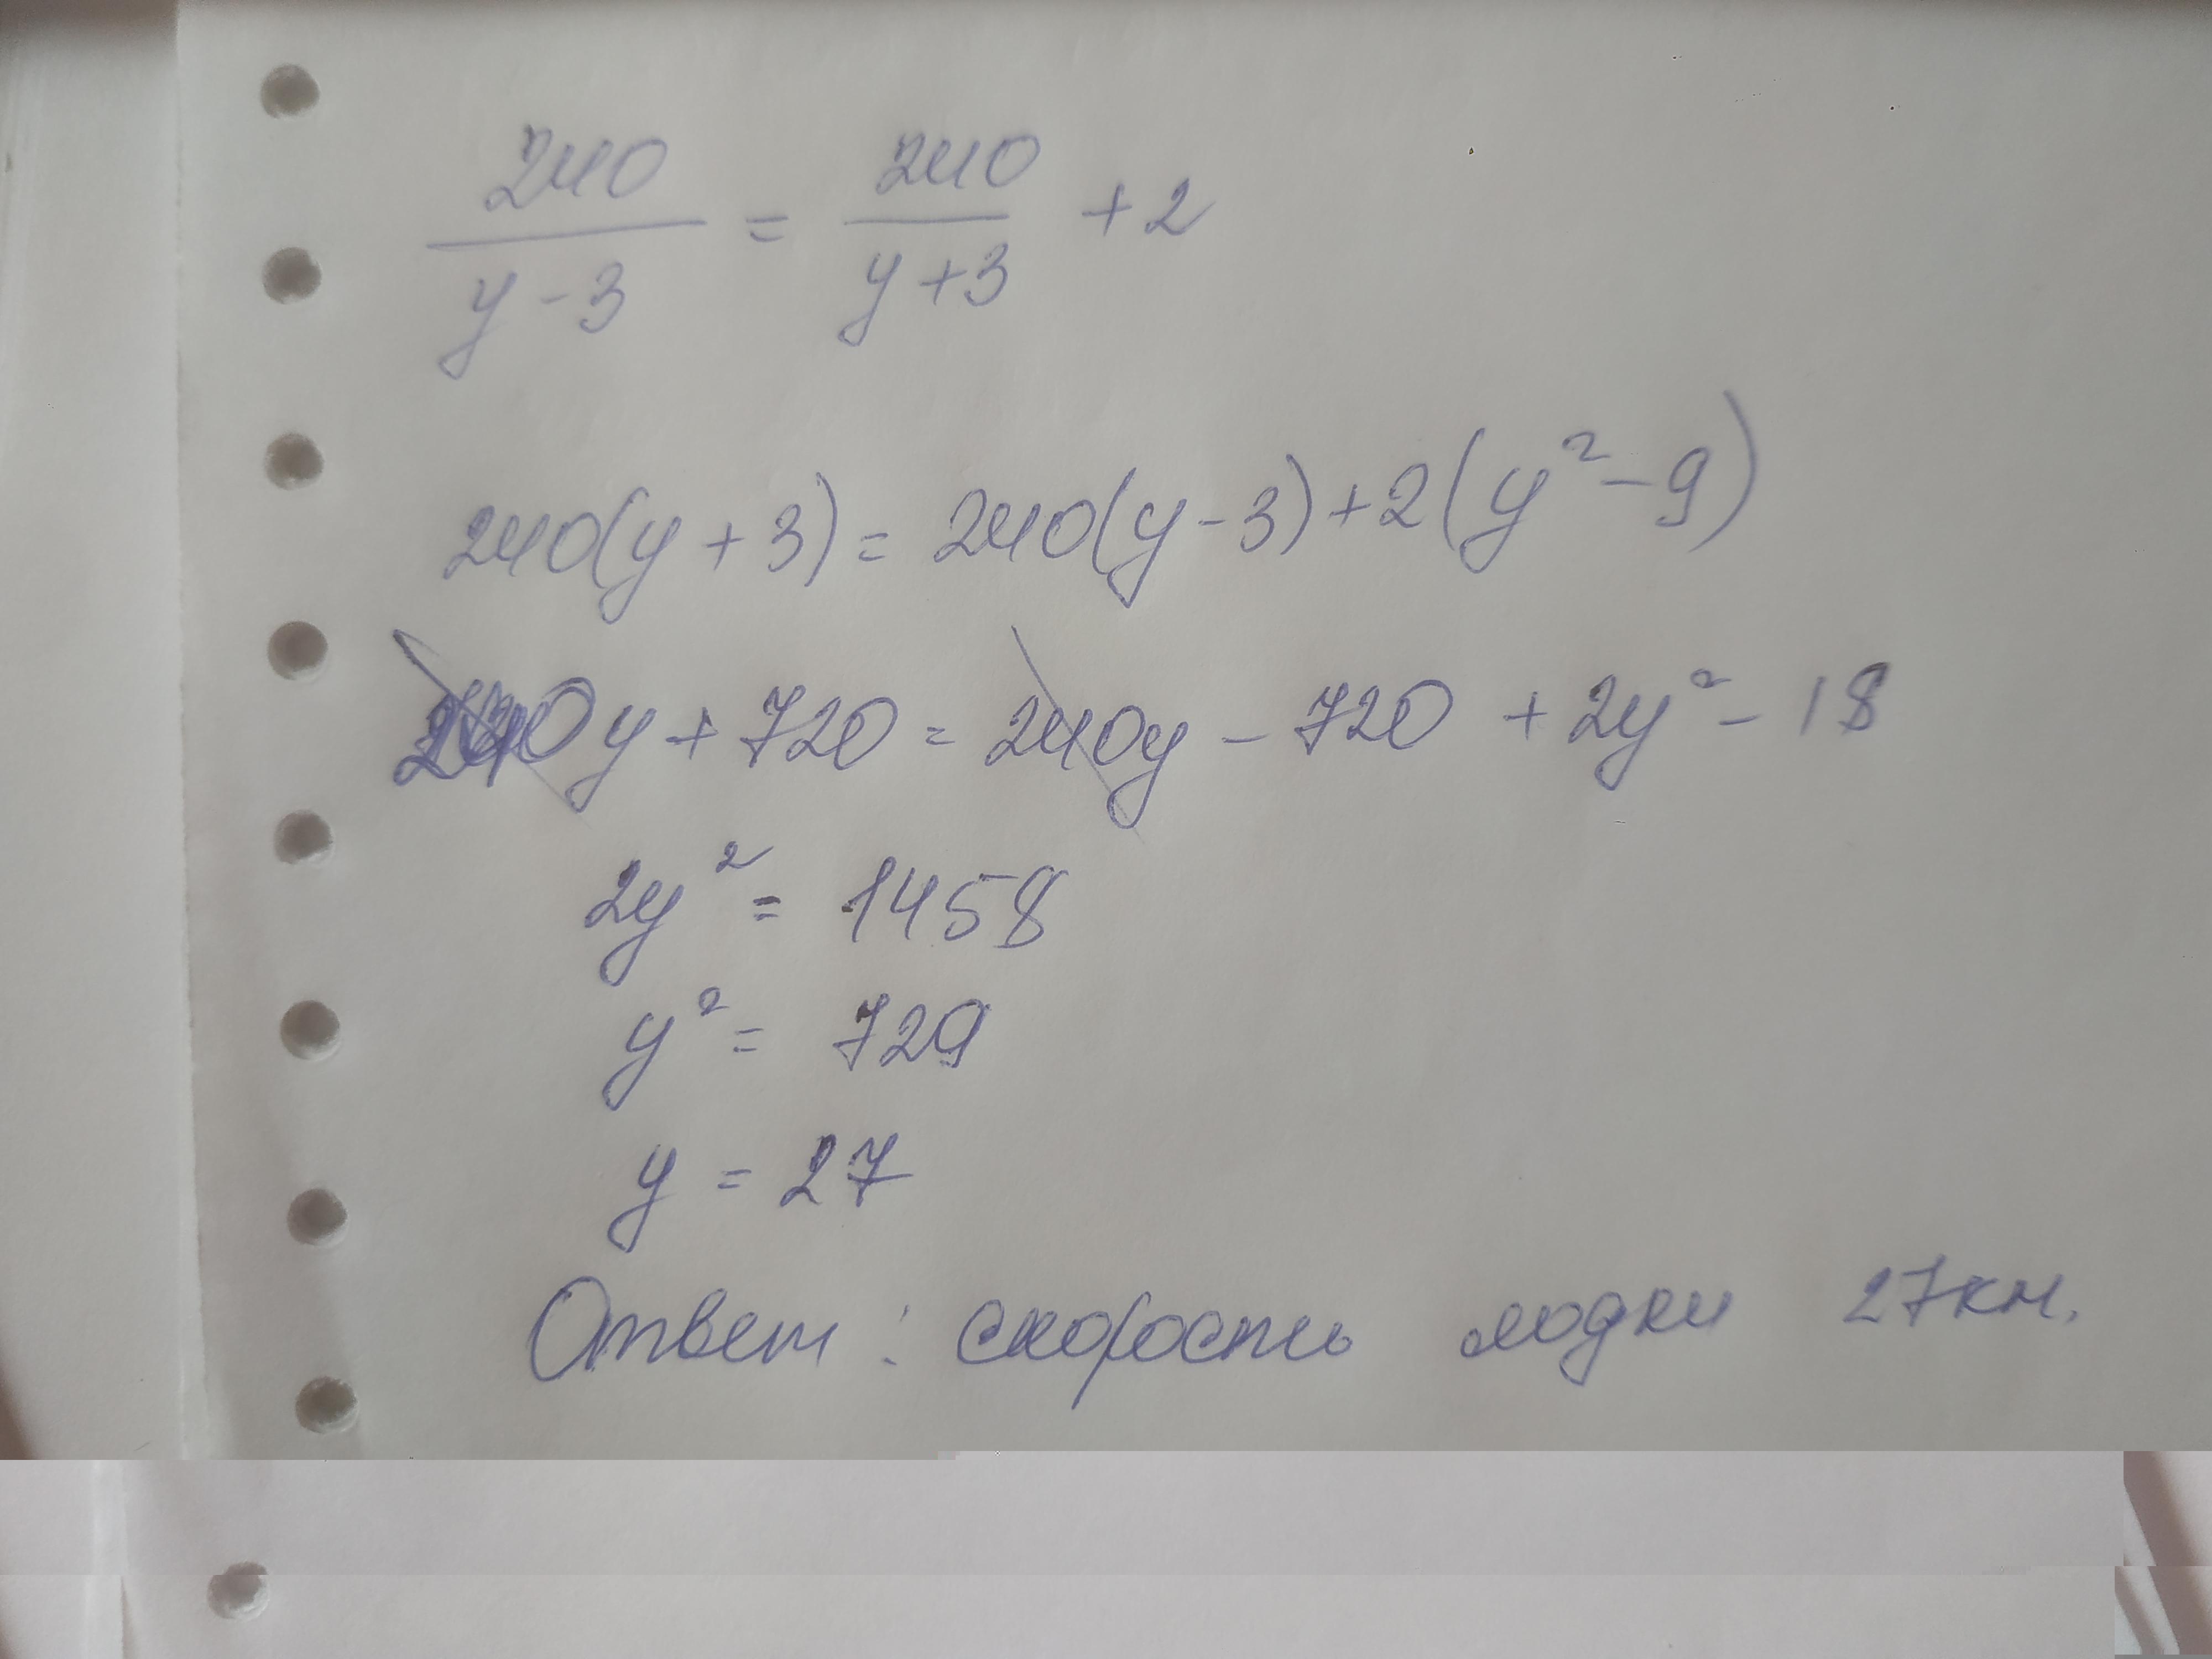 240/(y-3) = 240/(y+3) + 2
240(y+3) = 240(y-3) + 2(y²-9)
240y + 720 = 240y - 720 + 2y² - 18
2y² = 1458
y² = 729
y = 27
Ответ: скорость лодки 27км.